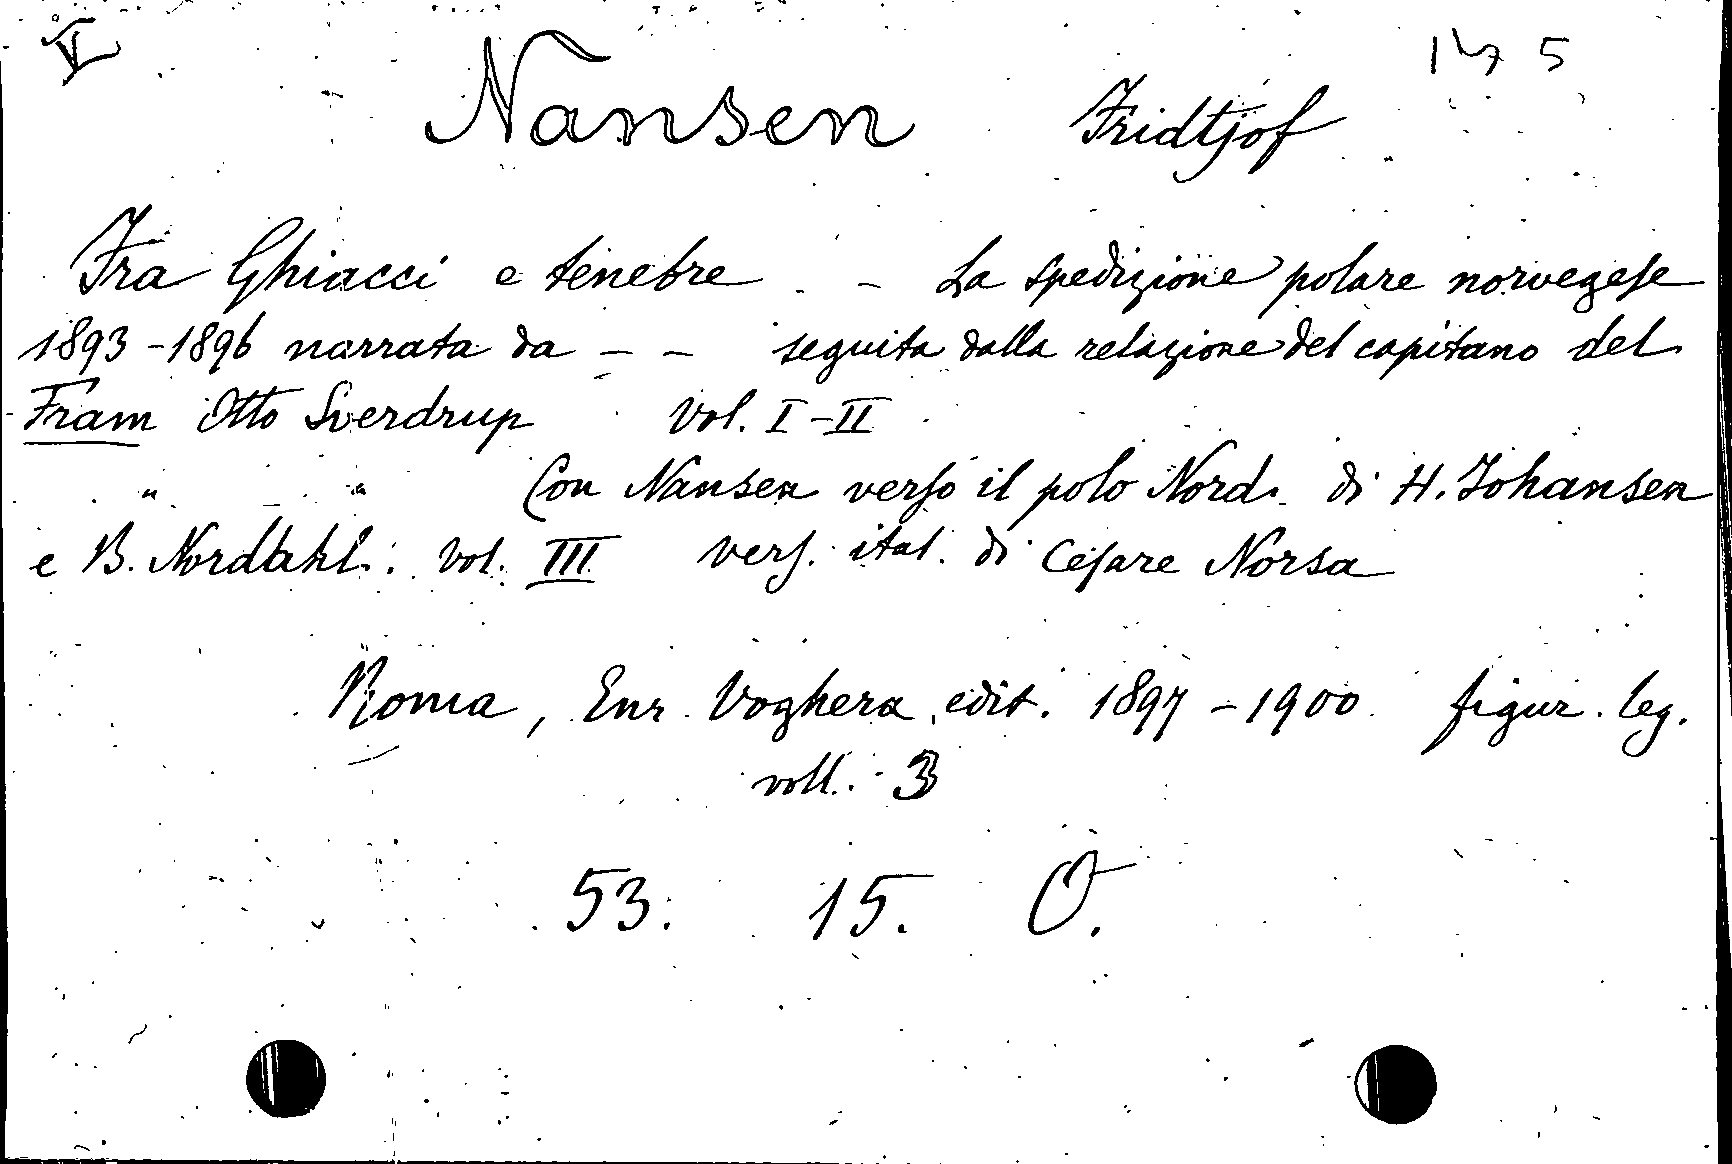 V
Nansen Fridtjof
Fra Ghiacci e tenebre - - La spedizione polare norvegese
1893-1896 narrata da - - seguita dalla relazione del capitano del
Fram Otto Sverdrup Vol. I-II
" " Con Nansen verso il polo Nord. di H. Johansen
e B. Nordtahl: Vol. III vers. ital. di Cesare Norsa
Roma, Enr. Voghera edit. 1897-1900 figur. leg.
voll. 3
53. 15. O.